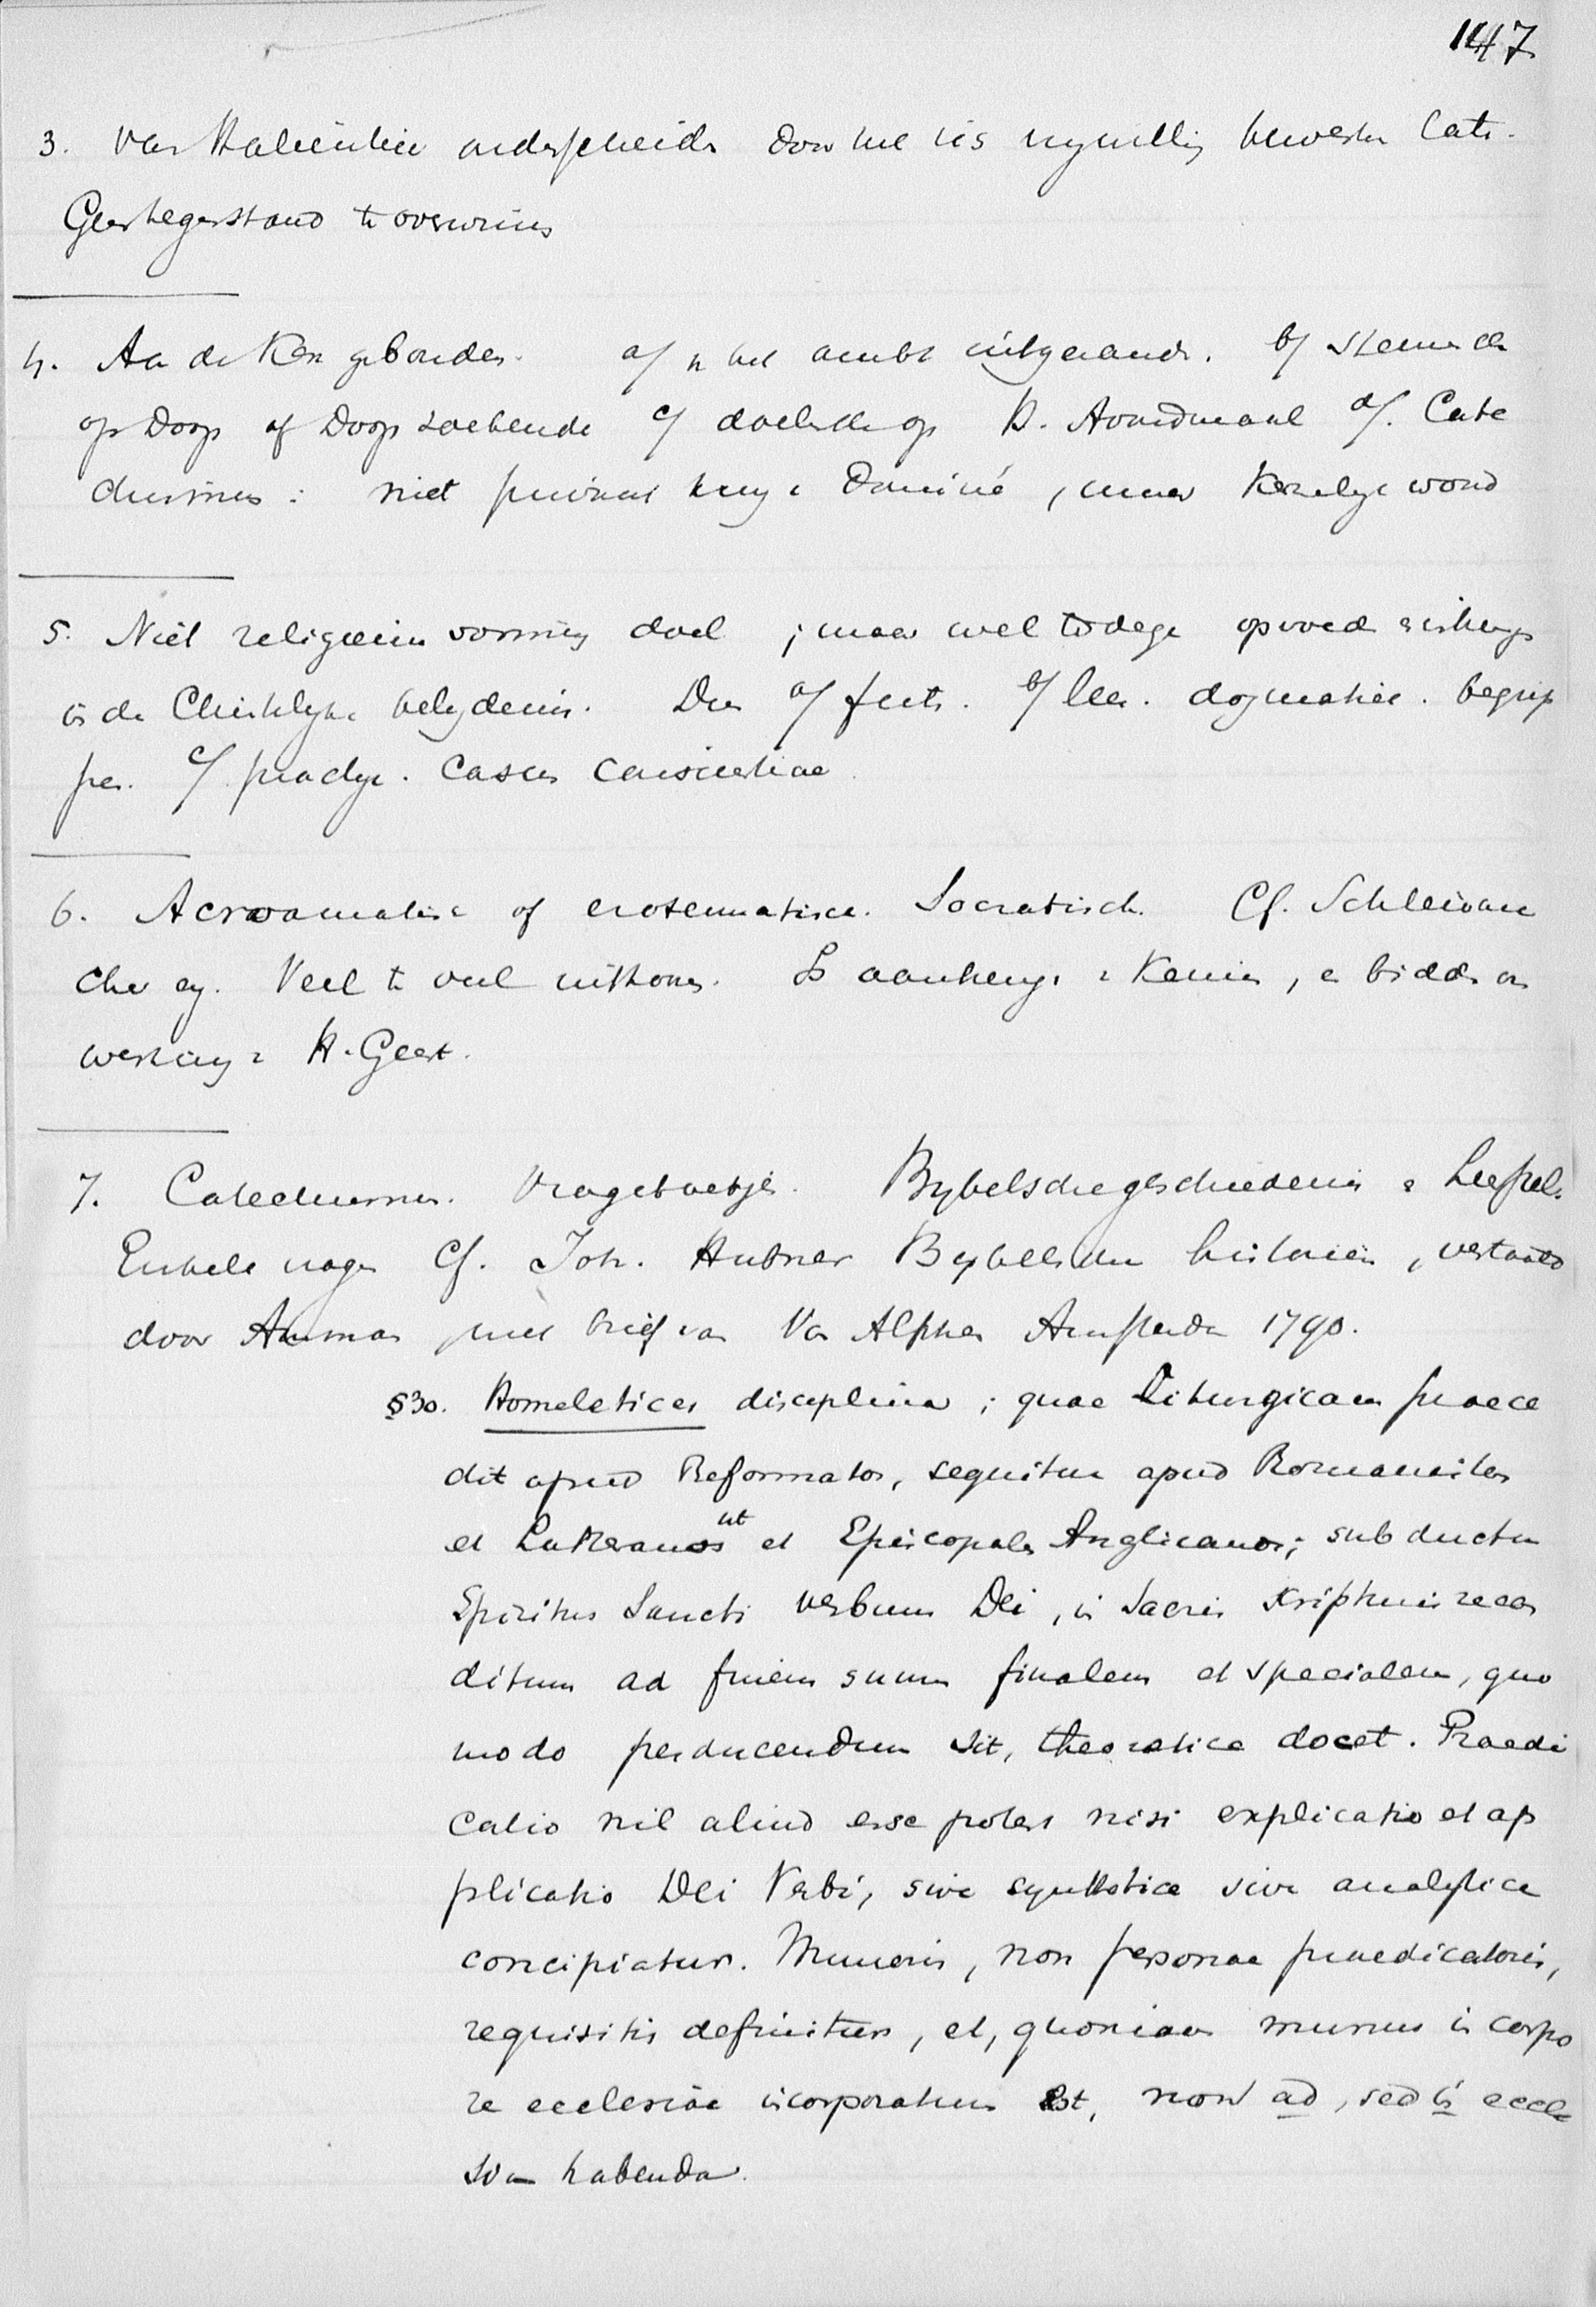 147
3. Van Halieutiek onderscheiden door het is vrywillig
Geen tegenstand te overwinnen
4. Aan de Kerk gebonden. a/ het ambt uitgaande. b/ steunende
op Doop of Doop zoekende c/ doelende op H. Avondmaal d/. Cate
chismus: niet privaat Dominé, maar Kerkelyk woord
5. Niet religieuse vorming doel; maar wel te dege opvoeding
in de Christelyke belydenis. Dus a/ feiten. b/ leer. dogmatiek. begrip
pen. c/ practyk. Casus Conscientiae
6. Acroamatisch of erotematisch. Socratisch. Cf. Schleierma
cher. Veel te veel kennis, bidden om
werking H. Geest.
7. Catechismus. Vrageboekjes. Bybelsche geschiedenis
Enkele vragen Cf. Joh. Hubner Bybelsche historien, vertaald
door met brief van Van Alphen Amsterdam 1790.
§30. Homeletices disciplina; quae Liturgicam praece
dit apud Reformatos, sequitur apud Romanistas
et Lutheranos ut et Episcopales Anglicanos; sub ductu
Spiritus Sancti verbum Dei, in Sacris Scripturis recon
ditum ad finem suum finalem et specialem, quo
modo perducendum sit, theoretice docet. Praedi
catio nil aliud esse potest nisi explicatio et ap
plicatio Dei Verbi, sive synthetice sive analytice
concipiatur. Muneris, non personae praedicatoris,
requisitis definitur, et, quoniam munus in corpo
re ecclesiae incorporatum est, non ad, sed in eccle
sia habenda.